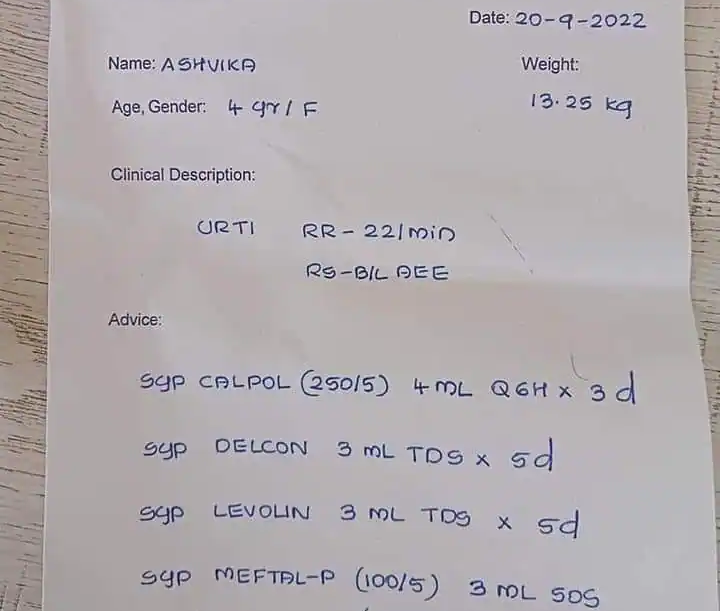 Date: 20-9-2022
Name: ASHVIKA Weight:
Age, Gender: 4 yr / F 13.25 kg
Clinical Description:
URTI RR - 22/min
RS - B/L AEE
Advice:
syp CALPOL (250/5) 4 mL Q6H x 3 d
syp DELCON 3 mL TDS x 5d
syp LEVOLIN 3 mL TDS x 5d
syp MEFTAL-P (100/5) 3 mL SOS